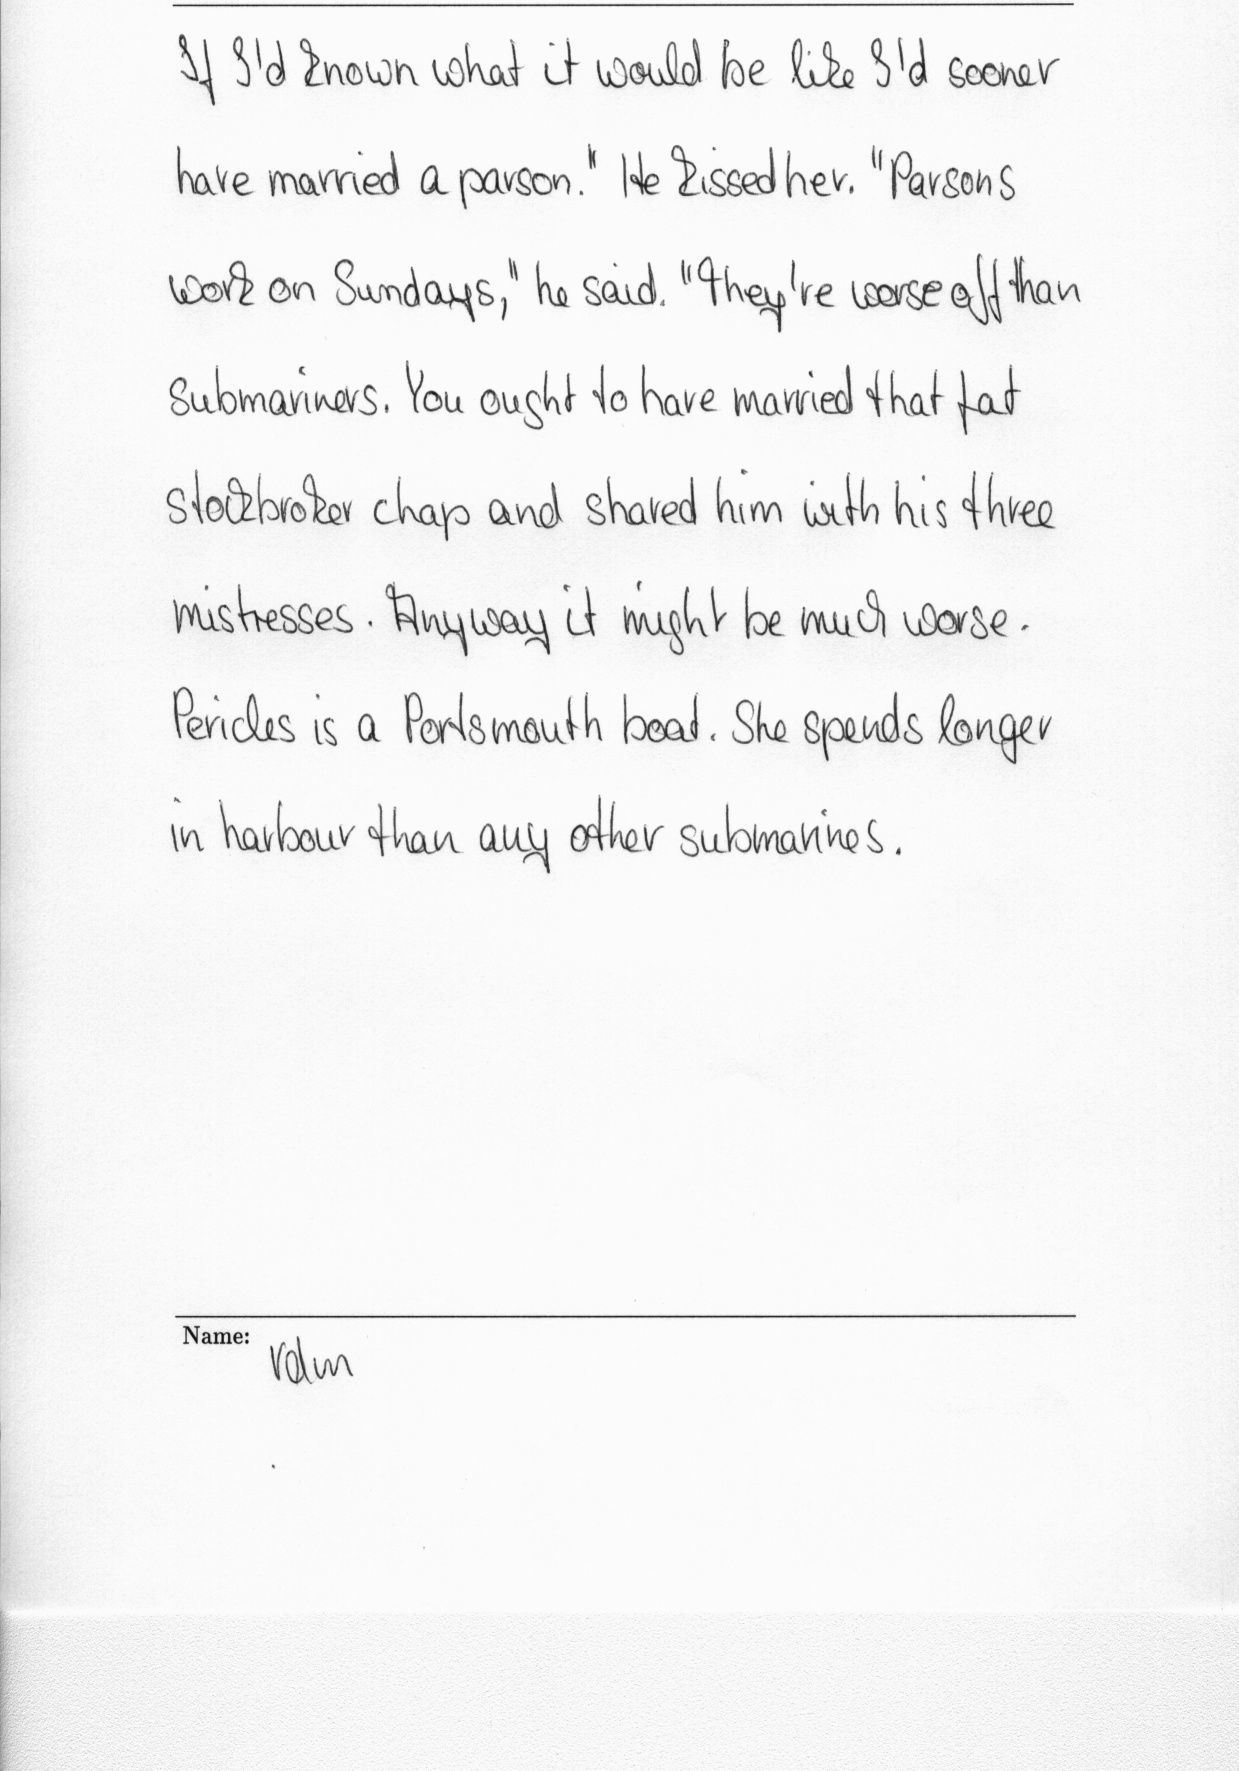 If I'd known what it would be like I'd sooner
have married a parson." He kissed her. "Parsons
work on Sundays," he said. "They're worse off than
submariners. You ought to have married that fat
stockbroker chap and shared him with his three
mistresses. Anyway it might be much worse.
Pericles is a Portsmouth boat. She spends longer
in harbour than any other submarines.
Name: